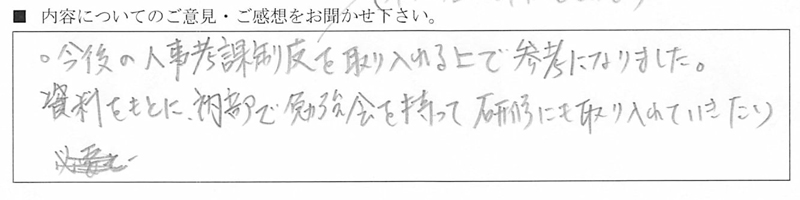 ■ 内容についてのご意見・ご感想をお聞かせ下さい。
。今後の人事考課制度を取り入れる上で参考になりました。
資料をもとに、内部で勉強会を持って研修にも取り入れていきたい